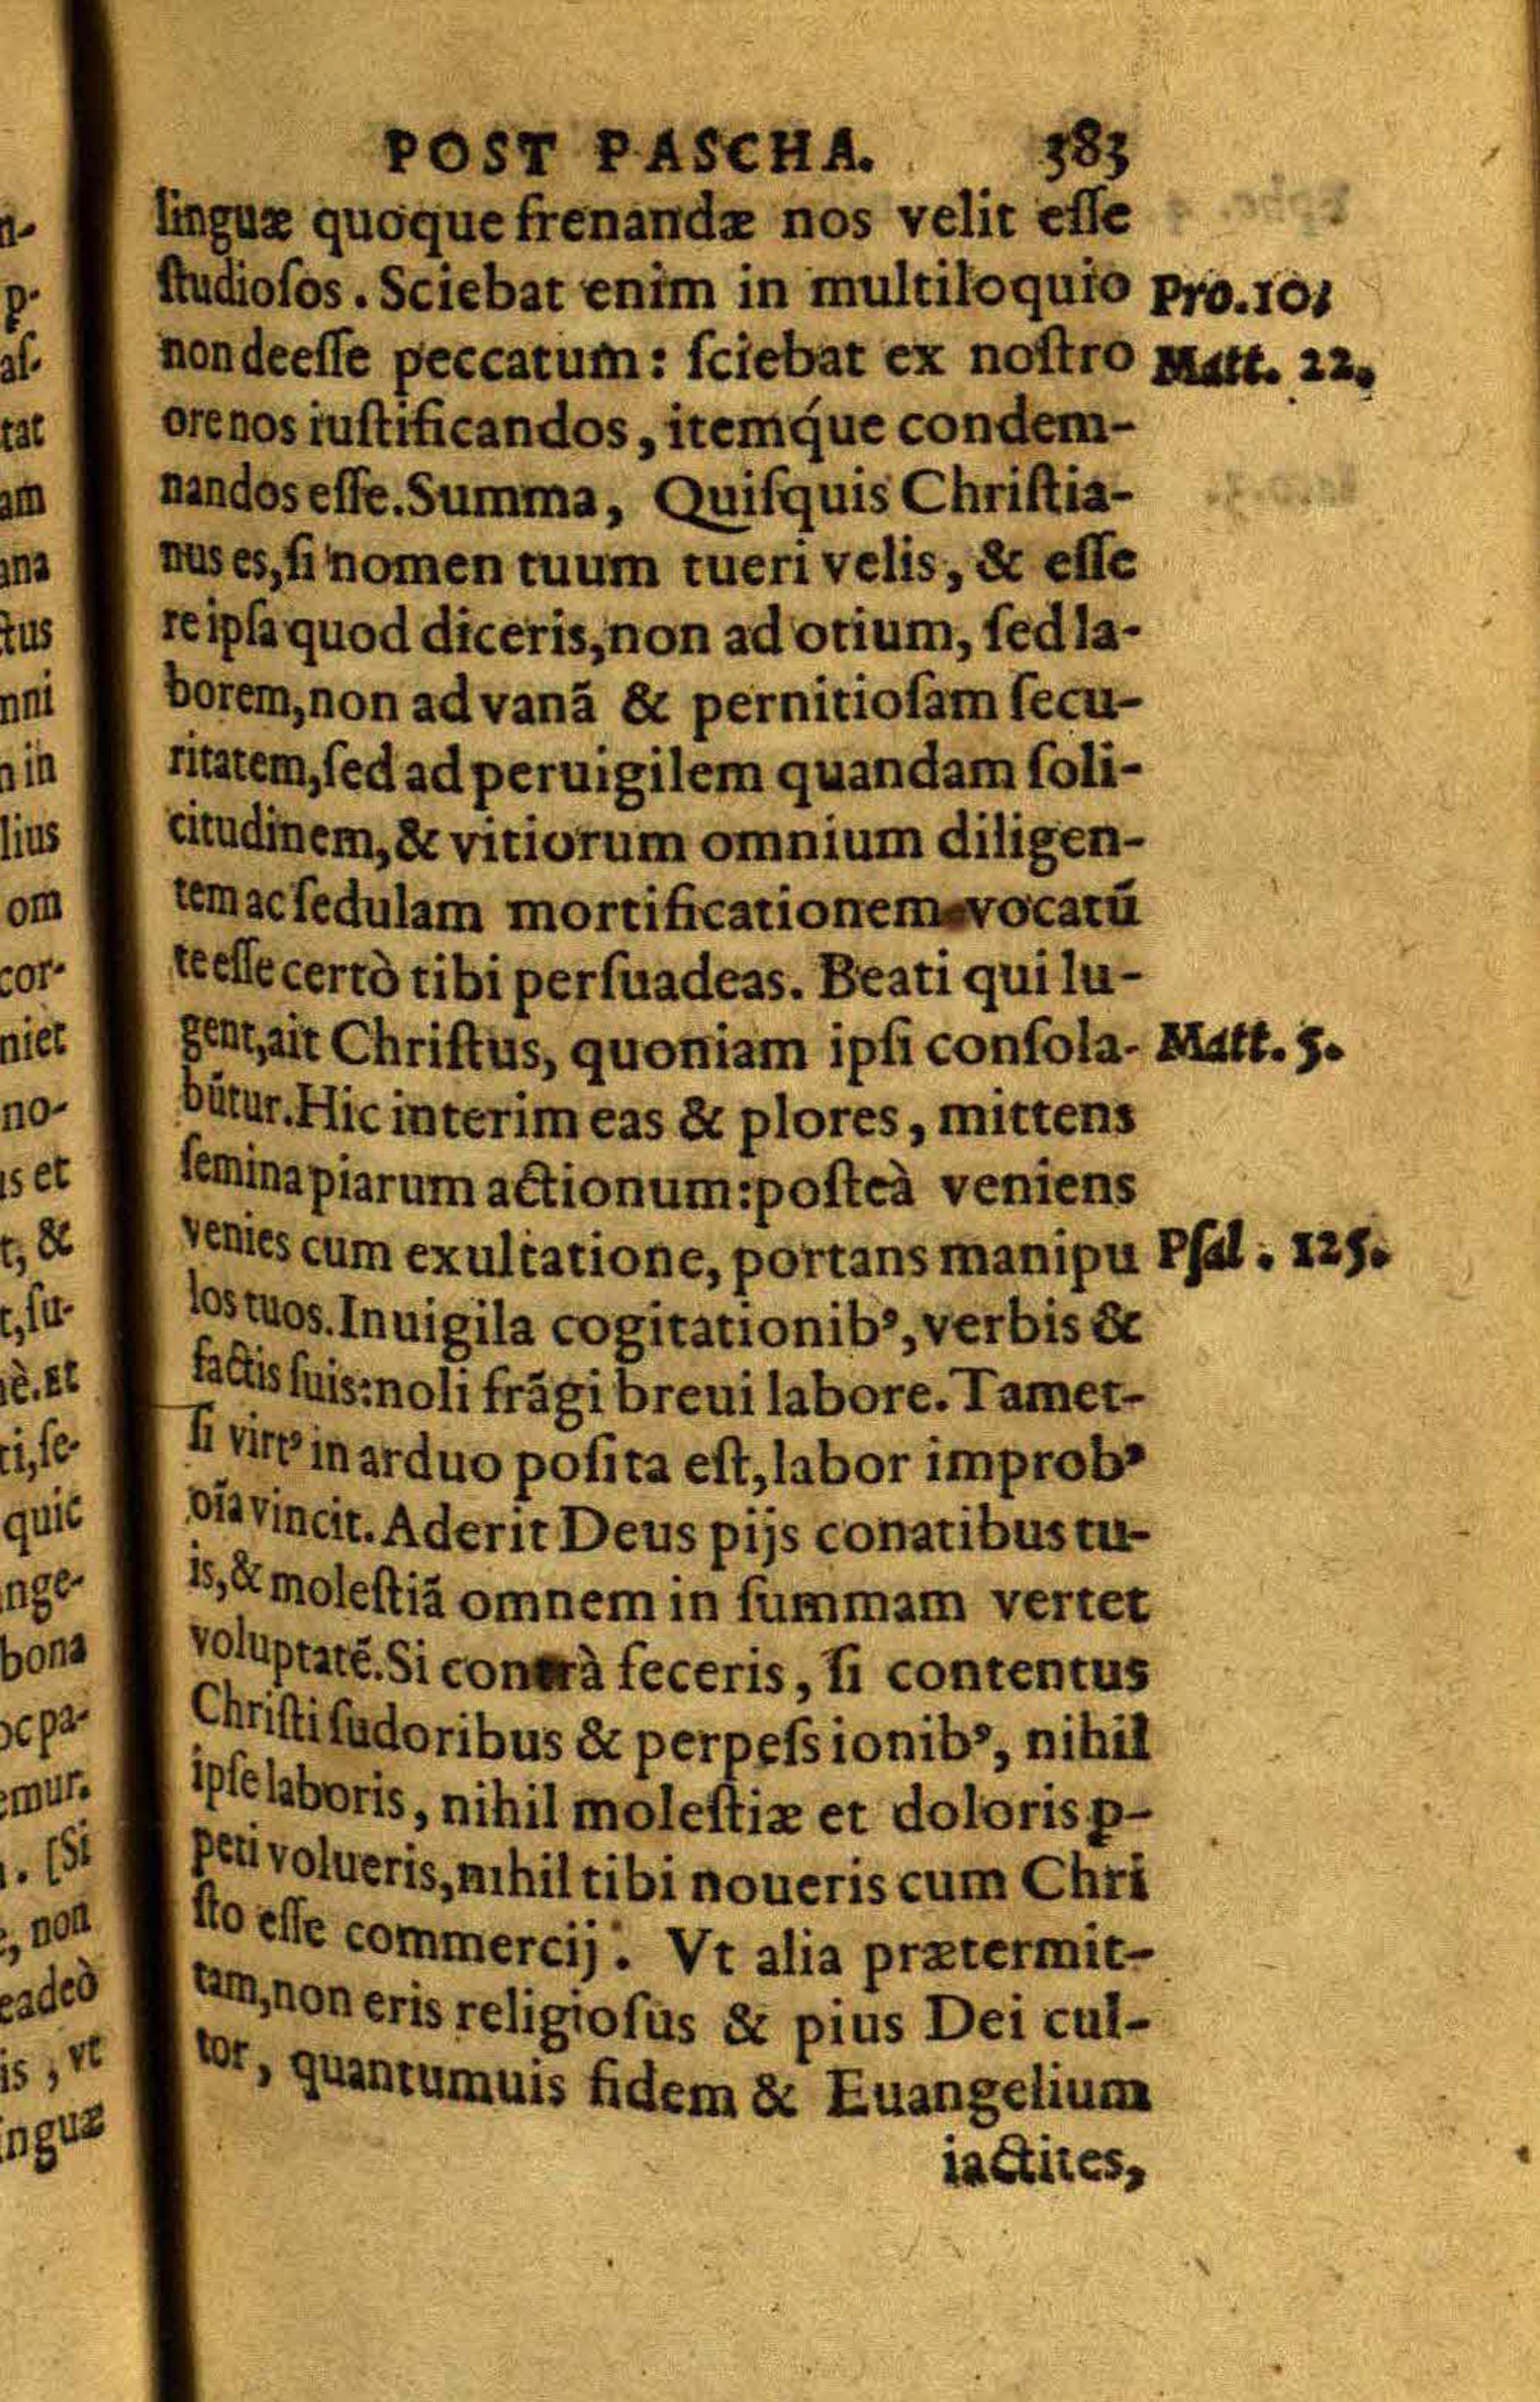 POST PASCHA. 383
linguæ quoque frenandæ nos velit eſſe
ſtudioſos. Sciebat enim in multiloquio Pro. 10,
non deeſſe peccatum: ſciebat ex noſtro Matt. 22.
ore nos iuſtificandos, itemq́ue condem-
nandos eſſe. Summa, Quiſquis Chriſtia-
nus es, ſi nomen tuum tueri velis, & eſſe
re ipſa quod diceris, non ad otium, ſed la-
borem, non ad vanã & pernitioſam ſecu-
ritatem, ſed ad peruigilem quandam ſoli-
citudinem, & vitiorum omnium diligen-
tem ac ſedulam mortificationem vocatũ
te eſſe certò tibi perſuadeas. Beati qui lu-
gent, ait Chriſtus, quoniam ipſi conſola- Matt. 5.
bũtur. Hic interim eas & plores, mittens
ſemina piarum actionum: poſteà veniens
venies cum exultatione, portans manipu Pſal. 125.
los tuos. Inuigila cogitationibꝰ, verbis &
factis ſuis: noli frãgi breui labore. Tamet-
ſi virtꝰ in arduo poſita eſt, labor improbꝰ
oĩa vincit. Aderit Deus pijs conatibus tu-
is, & moleſtiã omnem in ſummam vertet
voluptatẽ. Si contrà feceris, ſi contentus
Chriſti ſudoribus & perpeſsionibꝰ, nihil
ipſe laboris, nihil moleſtiæ et doloris ꝑ-
peti volueris, nihil tibi noueris cum Chri
ſto eſſe commercij. Vt alia prætermit-
tam, non eris religioſus & pius Dei cul-
tor, quantumuis fidem & Euangelium
iactites,